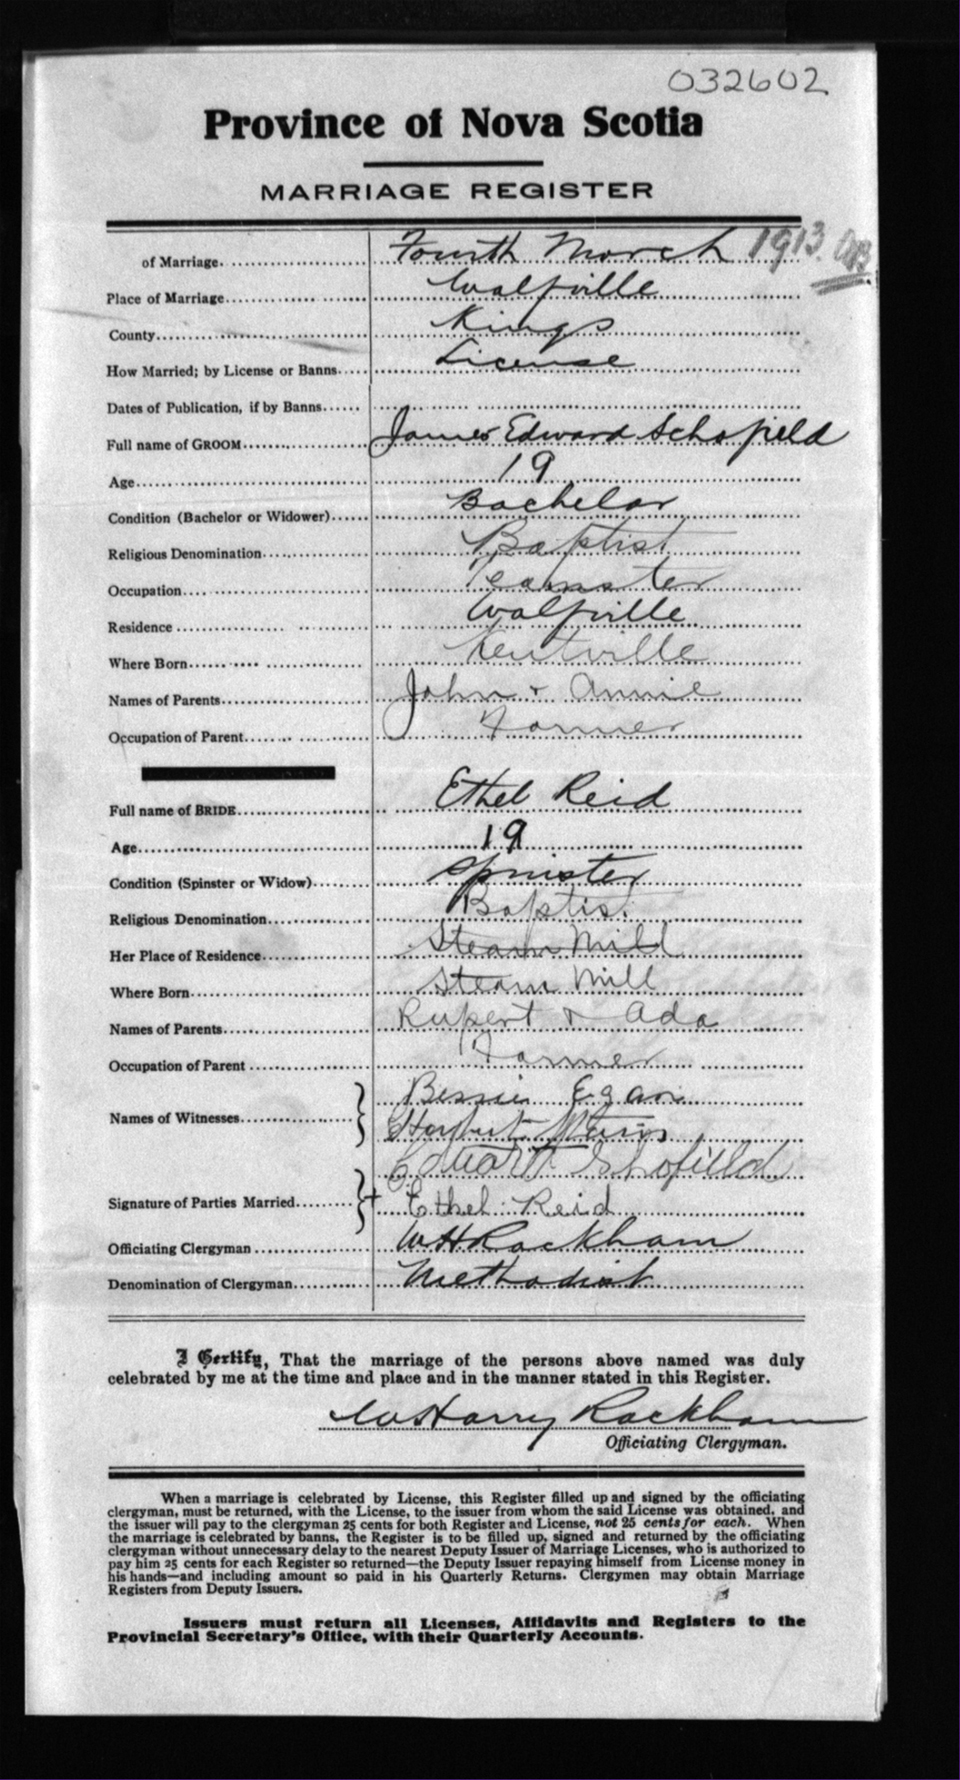 032602
Province of Nova Scotia
MARRIAGE REGISTER
of Marriage. Fourth March 1913.
Place of Marriage Wolfville
County Kings
How Married; by License or Banns License
Dates of Publication, if by Banns
Full name of GROOM James Edward Schofield
Age 19
Condition (Bachelor or Widower) Bachelor
Religious Denomination Baptist
Occupation Teamster
Residence Wolfville
Where Born Kentville
Names of Parents John + Annie
Occupation of Parent Farmer
Full name of BRIDE Ethel Reid
Age 19
Condition (Spinster or Widow) Spinster
Religious Denomination Baptist
Her Place of Residence Steam Mill
Where Born Steam Mill
Names of Parents Rupert & Ada
Occupation of Parent Farmer
Names of Witnesses Bessie Egan
Herbert
Schofield
Signature of Parties Married + Ethel Reid
Officiating Clergyman W H Rackham
Denomination of Clergyman Methodist
I Certify, That the marriage of the persons above named was duly
celebrated by me at the time and place and in the manner stated in this Register.
W Harry Rackham
Officiating Clergyman.
When a marriage is celebrated by License, this Register filled up and signed by the officiating
clergyman, must be returned, with the License, to the issuer from whom the said License was obtained, and
the issuer will pay to the clergyman 25 cents for both Register and License, not 25 cents for each. When
the marriage is celebrated by banns, the Register is to be filled up, signed and returned by the officiating
clergyman without unnecessary delay to the nearest Deputy Issuer of Marriage Licenses, who is authorized to
pay him 25 cents for each Register so returned—the Deputy Issuer repaying himself from License money in
his hands—and including amount so paid in his Quarterly Returns. Clergymen may obtain Marriage
Registers from Deputy Issuers.
Issuers must return all Licenses, Affidavits and Registers to the
Provincial Secretary's Office, with their Quarterly Accounts.